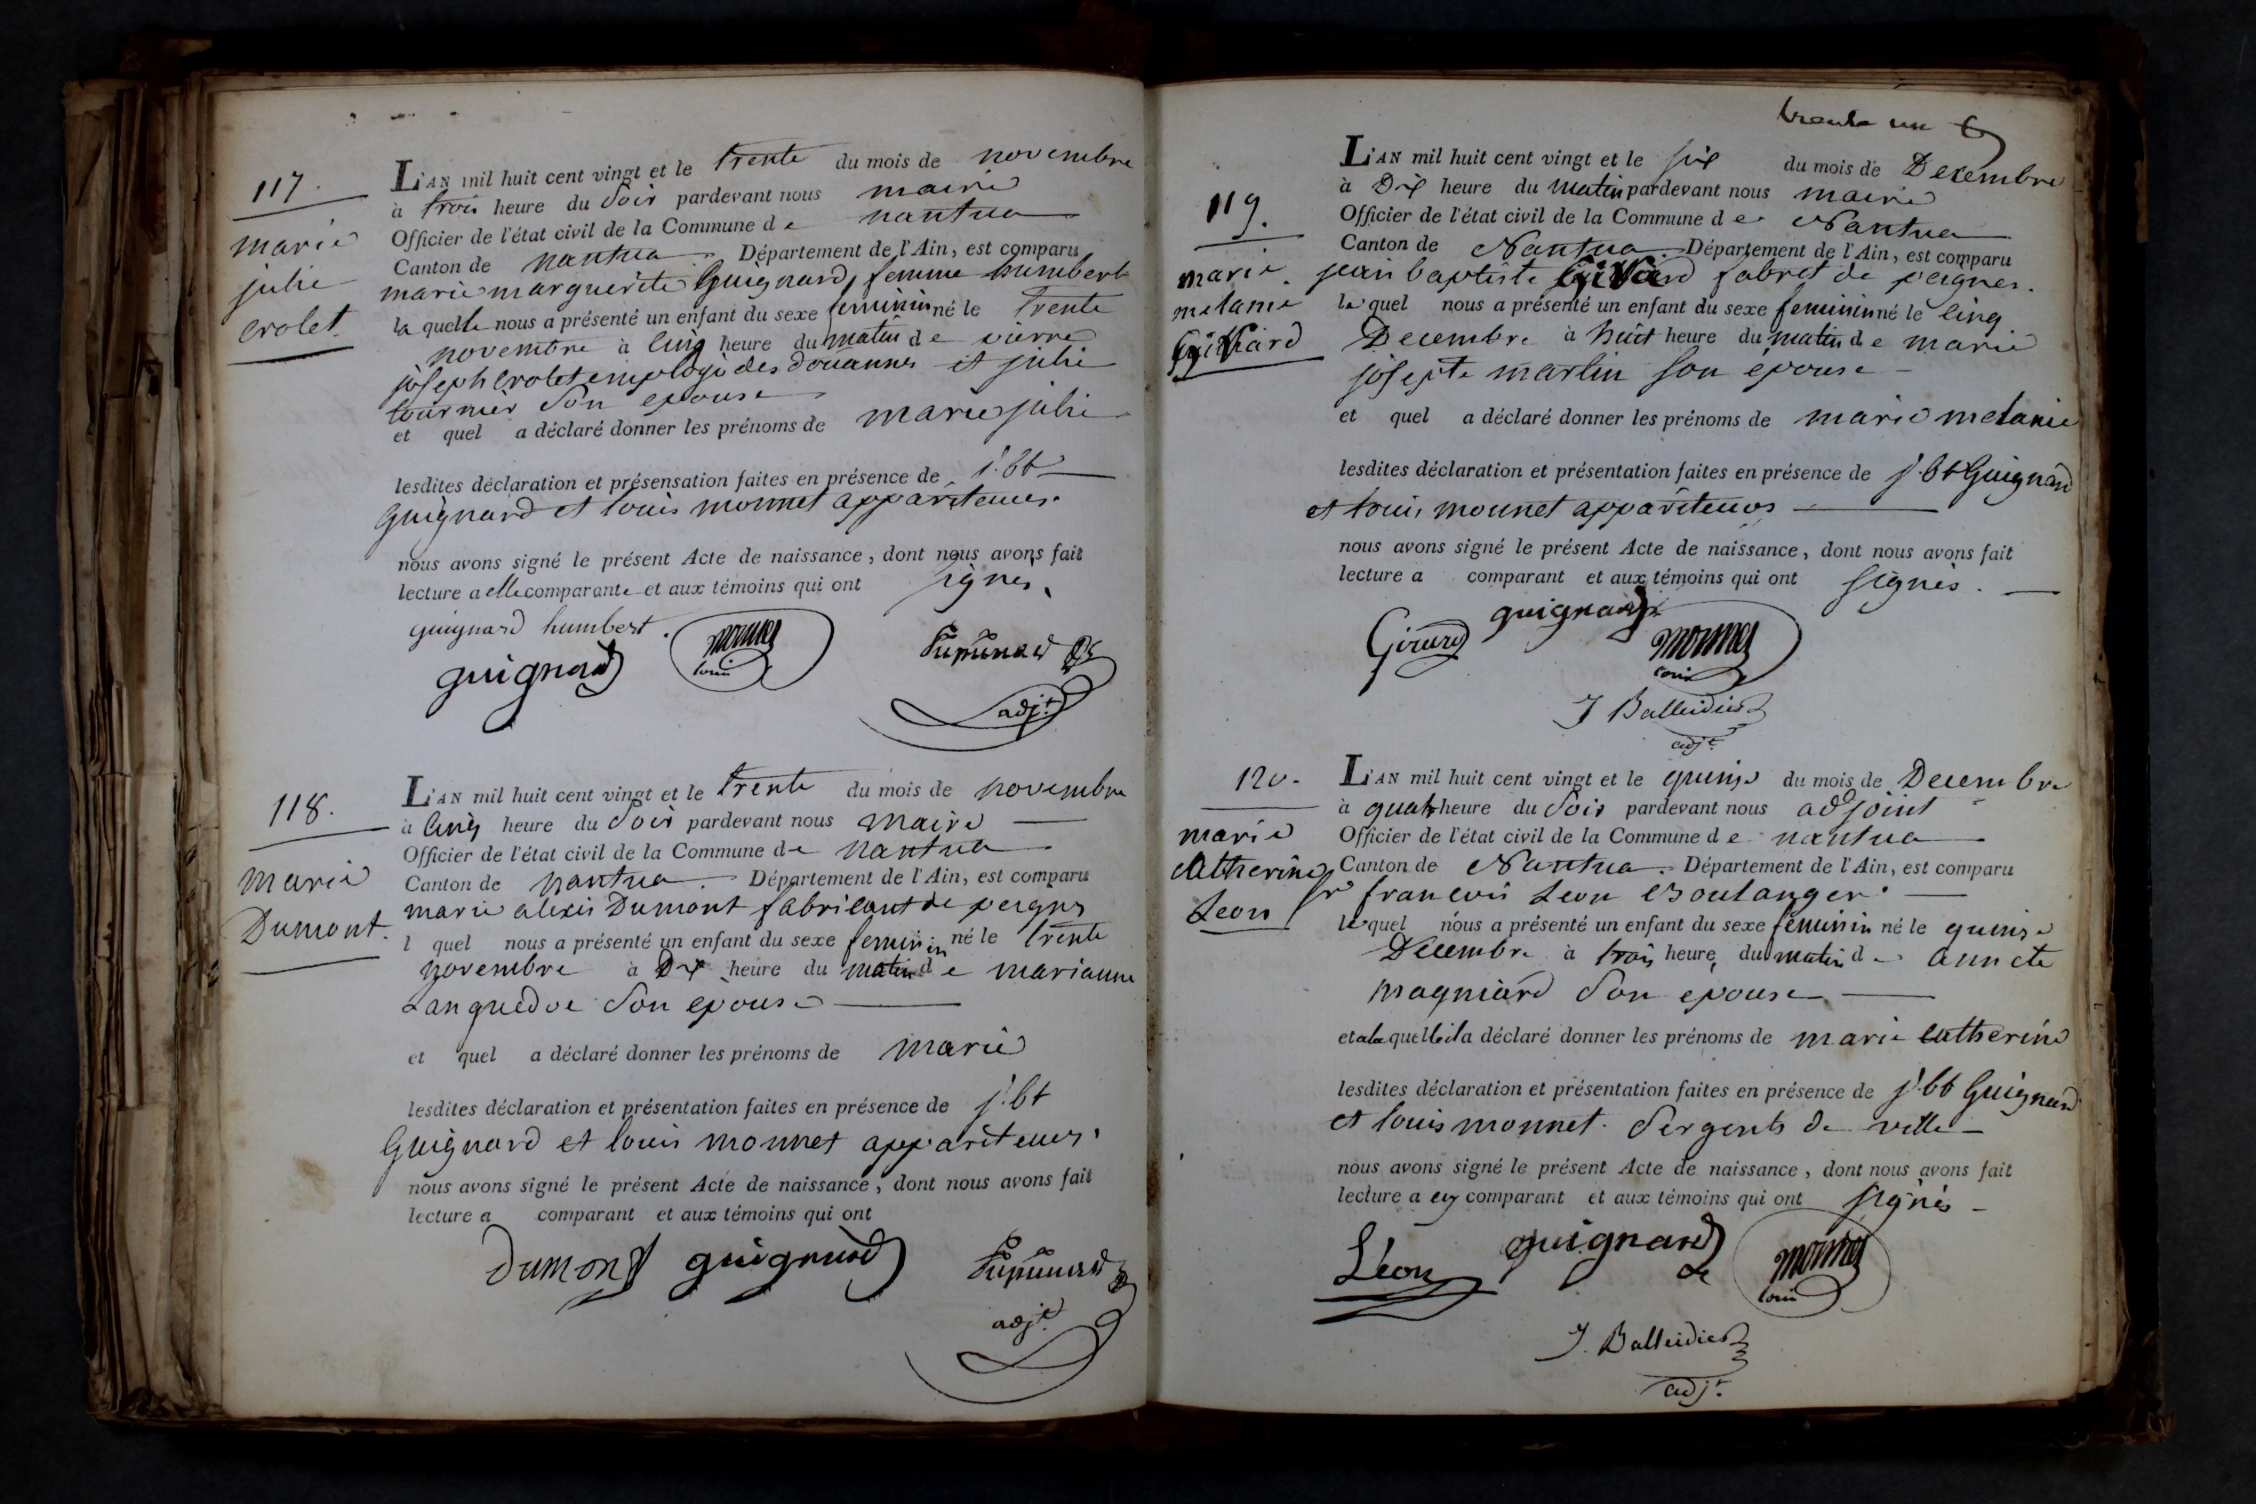 117.
marie
julie
crolet
L'AN mil huit cent vingt et le trente du mois de novembre
à trois heure du soir pardevant nous maire
Officier de l'état civil de la Commune d e nantua
Canton de nantua. Département de l'Ain, est comparu
marie marguerite Guignard, femme humbert
la quelle nous a présenté un enfant du sexe feminin né le trente
novembre à cinq heure du matin d e pierre
joseph crolet employé des douannes et julie
tournier son epouse
et quel a déclaré donner les prénoms de marie julie
lesdites déclaration et présensation faites en présence de j. bt
Guignard et louis monnet appariteurs.
nous avons signé le présent Acte de naissance, dont nous avons fait
lecture a elle comparante et aux témoins qui ont signés.
guignard humbert.
guignard
monnet
louis
adjt.
118.
marie
Dumont.
L'AN mil huit cent vingt et le trente du mois de novembre
à cinq heure du soir pardevant nous maire
Officier de l'état civil de la Commune d e nantua
Canton de nantua. Département de l'Ain, est comparu
marie alexis Dumont fabricant de peignes
l quel nous a présenté un enfant du sexe feminin né le trente
novembre à Dix heure du matin d e marianne
Languedoc son epouse
et quel a déclaré donner les prénoms de marie
lesdites déclaration et présentation faites en présence de j. bt
Guignard et louis monnet appariteurs.
nous avons signé le présent Acte de naissance, dont nous avons fait
lecture a comparant et aux témoins qui ont
Dumont guignard
adjt.
trente un
119.
marie
melanie
L'AN mil huit cent vingt et le six du mois de Decembre
à Dix heure du matin pardevant nous maire
Officier de l'état civil de la Commune d e Nantua
Canton de Nantua. Département de l'Ain, est comparu
jean baptiste fabret de peignes.
le quel nous a présenté un enfant du sexe feminin né le cinq
Decembre à huit heure du matin d e marie
josepte martin son épouse
et quel a déclaré donner les prénoms de marie melanie
lesdites déclaration et présentation faites en présence de j. bt Guignard
et louis monnet appariteurs
nous avons signé le présent Acte de naissance, dont nous avons fait
lecture a comparant et aux témoins qui ont signés.
Girard guignard
monnet
louis
J Balleidier
adjt.
120.
marie
Catherine
Leon
L'AN mil huit cent vingt et le quinze du mois de Decembre
à quatr heure du soir pardevant nous adjoint
Officier de l'état civil de la Commune d e nantua
Canton de Nantua. Département de l'Ain, est comparu
sr francois Leon Boulanger.
le quel nous a présenté un enfant du sexe feminin né le quinze
Decembre à trois heure du matin d e
magniard son epouse
et a la quelle il a déclaré donner les prénoms de marie catherine
lesdites déclaration et présentation faites en présence de j. bt Guignard
et louis monnet. Sergents de ville
nous avons signé le présent Acte de naissance, dont nous avons fait
lecture a comparant et aux témoins qui ont signés
Léon guignard
monnet
louis
J. Balleidier
adjt.